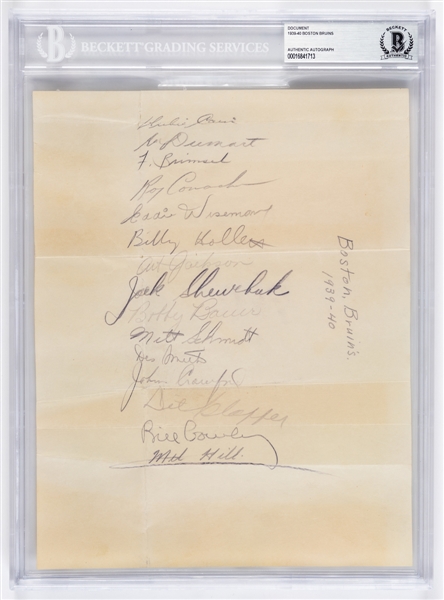 BECKETT GRADING SERVICES
DOCUMENT
1939-40 BOSTON BRUINS
AUTHENTIC AUTOGRAPH
00016841713
BECKETT
AUTHENTIC
W. Dumart
F. Brimsek
Roy Conacher
Eddie Wiseman
Billy Hollett
Art Jackson
Jack Shewchuk
Bobby Bauer
Milt Schmidt
Des Smith
John Crawford
Dit Clapper
Bill Cowley
Mel Hill
Boston, Bruins.
1939-40